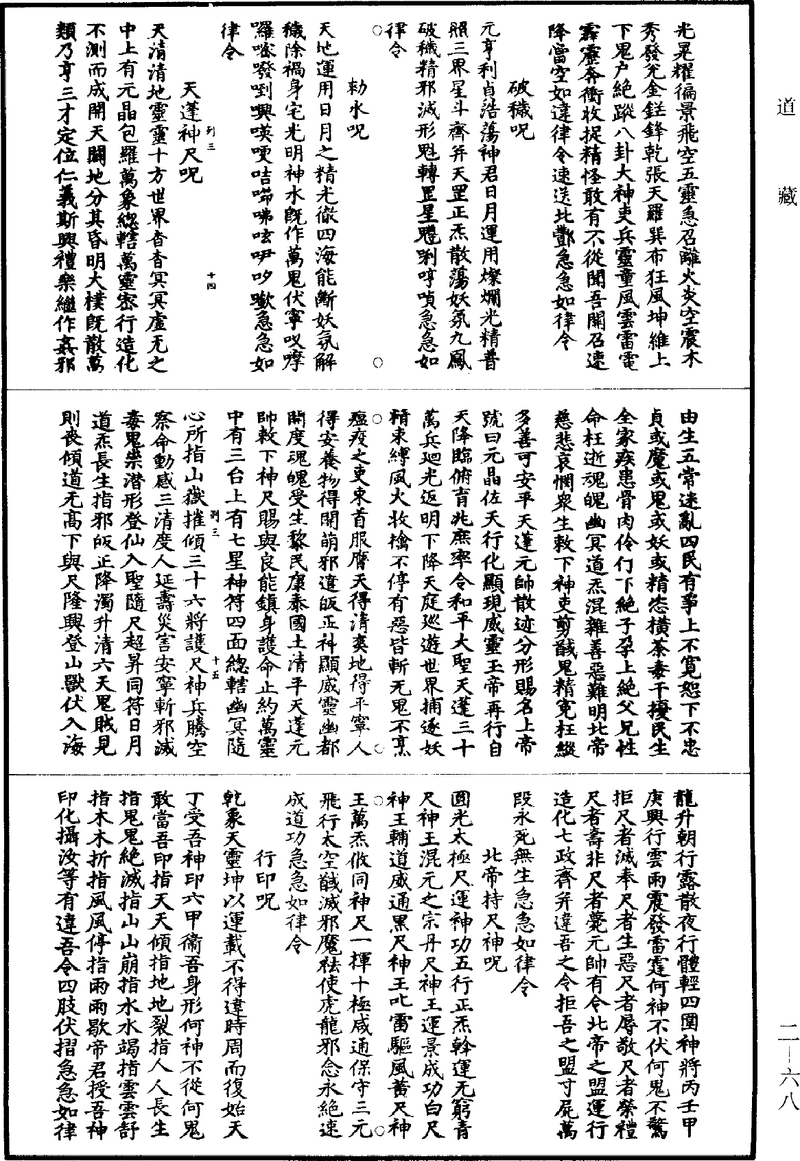 道藏
光晃耀徧景飛空五靈急召離火炎空震木
秀發兌金鋌鋒乾張天羅巽布狂風坤維上
下鬼户絶蹤八卦大神吏兵靈童風雲雷電
霹靂奔衝收捉精怪敢有不從聞吾開召速
降當空如違律令速送北酆急急如律令
破穢呪
元亨利貞浩蕩神君日月運用燦爛光精普
照三界星斗齊并天罡正炁散蕩妖氛九鳳
破穢精邪滅形魁轉罡星
律令
勑水呪
天地運用日月之精光徹四海能斷妖氛解
穢除禍身宅光明神水旣作萬鬼伏寧
律令
天蓬神尺呪
列三
十四
天清清地靈靈十方世界杳杳冥冥虛无之
中上有元晶包羅萬象總轄萬靈密行造化
不測而成開天闢地分其昏明大樸旣散萬
類乃亨三才定位仁義斯興禮樂繼作姦邪
由生五常迷亂四民有爭上不寬恕下不忠
貞或魔或鬼或妖或精恣橫荼毒干擾民生
全家疾患骨肉伶仃下絶子孕上絶父兄性
命枉逝魂魄幽冥道炁混雜善惡難明北帝
慈悲哀憫衆生敕下神吏剪馘鬼精寃枉縱
多善可安平天蓬元帥散迹分形賜名上帝
號曰元晶佐天行化顯現威靈玉帝再行自
天降臨俯育兆庶率令和平大聖天蓬三十
萬兵廻光返明下降天庭巡遊世界捕逐妖
精束縛風火收擒不停有惡皆斬无鬼不烹
瘟疫之吏束首服膺天得清爽地得平寧人
得安養物得開萌邪違皈正神顯威靈幽都
開度魂魄受生黎民康泰國土清平天蓬元
帥敕下神尺賜與良能鎮身護命止約萬靈
中有三台上有七星神符四面總轄幽冥隨
列三
十五
心所指山嶽摧傾三十六將護尺神兵騰空
察命動感三清度人延壽災害安寧斬邪滅
毒鬼祟潜形登仙入聖隨尺超昇同符日月
道炁長生指邪皈正降濁升清六天鬼賊見
則丧傾道无高下與尺隆興登山獸伏入海
龍升朝行露散夜行體輕四圍神將丙壬甲
庚興行雲雨震發雷霆何神不伏何鬼不驚
拒尺者滅奉尺者生惡尺者辱敬尺者榮禮
尺者壽非尺者薨元帥有令北帝之盟運行
造化七政齊并違吾之令拒吾之盟寸屍萬
段永死無生急急如律令
北帝持尺神呪
圓光太極尺運神功五行正炁斡運无窮青
尺神王混元之宗丹尺神王運景成功白尺
神王輔道威通黑尺神王叱雷驅風黄尺神
王萬炁攸同神尺一揮十極咸通保守三元
飛行太空馘滅邪魔祛使虎龍邪念永絶速
成道功急急如律令
行印呪
乾象天靈坤以運載不得違時周而復始天
丁受吾神印六甲衞吾身形何神不從何鬼
敢當吾印指天天傾指地地裂指人人長生
指鬼鬼絶滅指山山崩指水水竭指雲雲舒
指木木折指風風停指雨雨歇帝君授吾神
印化攝汝等有違吾令四肢伏摺急急如律
二-六八